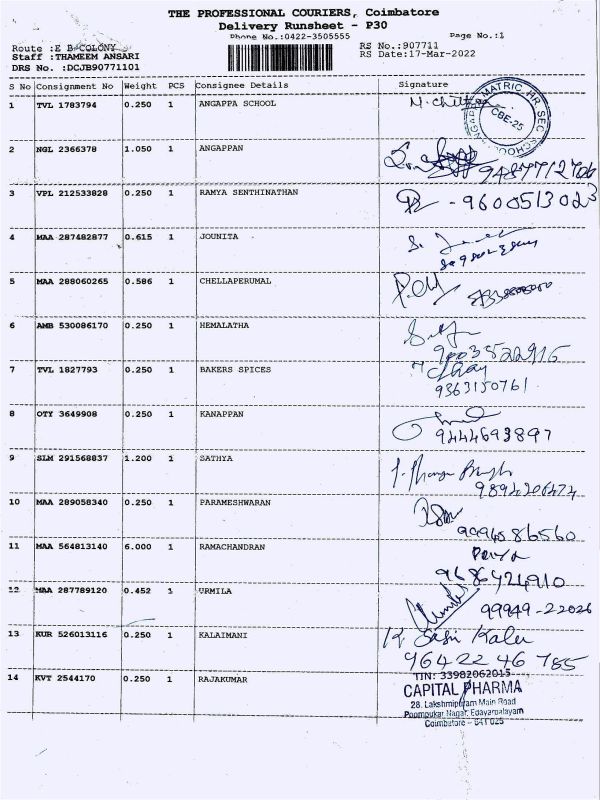 THE PROFESSIONAL COURIERS, Coimbatore
Delivery Runsheet - P30
Phone No.:0422-3505555
Page No.:1
Route :E B COLONY
RS No.:907711
Staff :THAMEEM ANSARI
RS Date:17-Mar-2022
DRS No. :DCJB90771101
S No Consignment No Weight PCS Consignee Details Signature
1 TVL 1783794 0.250 1 ANGAPPA SCHOOL
MATRIC. HR. SEC
CBE-25
2 NGL 2366378 1.050 1 ANGAPPAN
9487712706
3 VPL 212533828 0.250 1 RAMYA SENTHINATHAN
- 9600513023
4 MAA 287482877 0.615 1 JOUNITA
5 MAA 288060265 0.586 1 CHELLAPERUMAL
6 AMB 530086170 0.250 1 HEMALATHA
9003522916
7 TVL 1827793 0.250 1 BAKERS SPICES
9363150761
8 OTY 3649908 0.250 1 KANAPPAN
9444693897
9 SLM 291568837 1.200 1 SATHYA
9894206474
10 MAA 289058340 0.250 1 PARAMESHWARAN
9994086560
11 MAA 564813140 6.000 1 RAMACHANDRAN
Priya
9686424910
12 MAA 287789120 0.452 1 URMILA
99949-22026
13 KUR 526013116 0.250 1 KALAIMANI
K. Sasi Kala
964 22 46 785
14 KVT 2544170 0.250 1 RAJAKUMAR
TIN: 33982062015
CAPITAL PHARMA
28. Lakshmipuram Main Road
Poompukar Nagar, Edayarpalayam
Coimbatore - 641 025